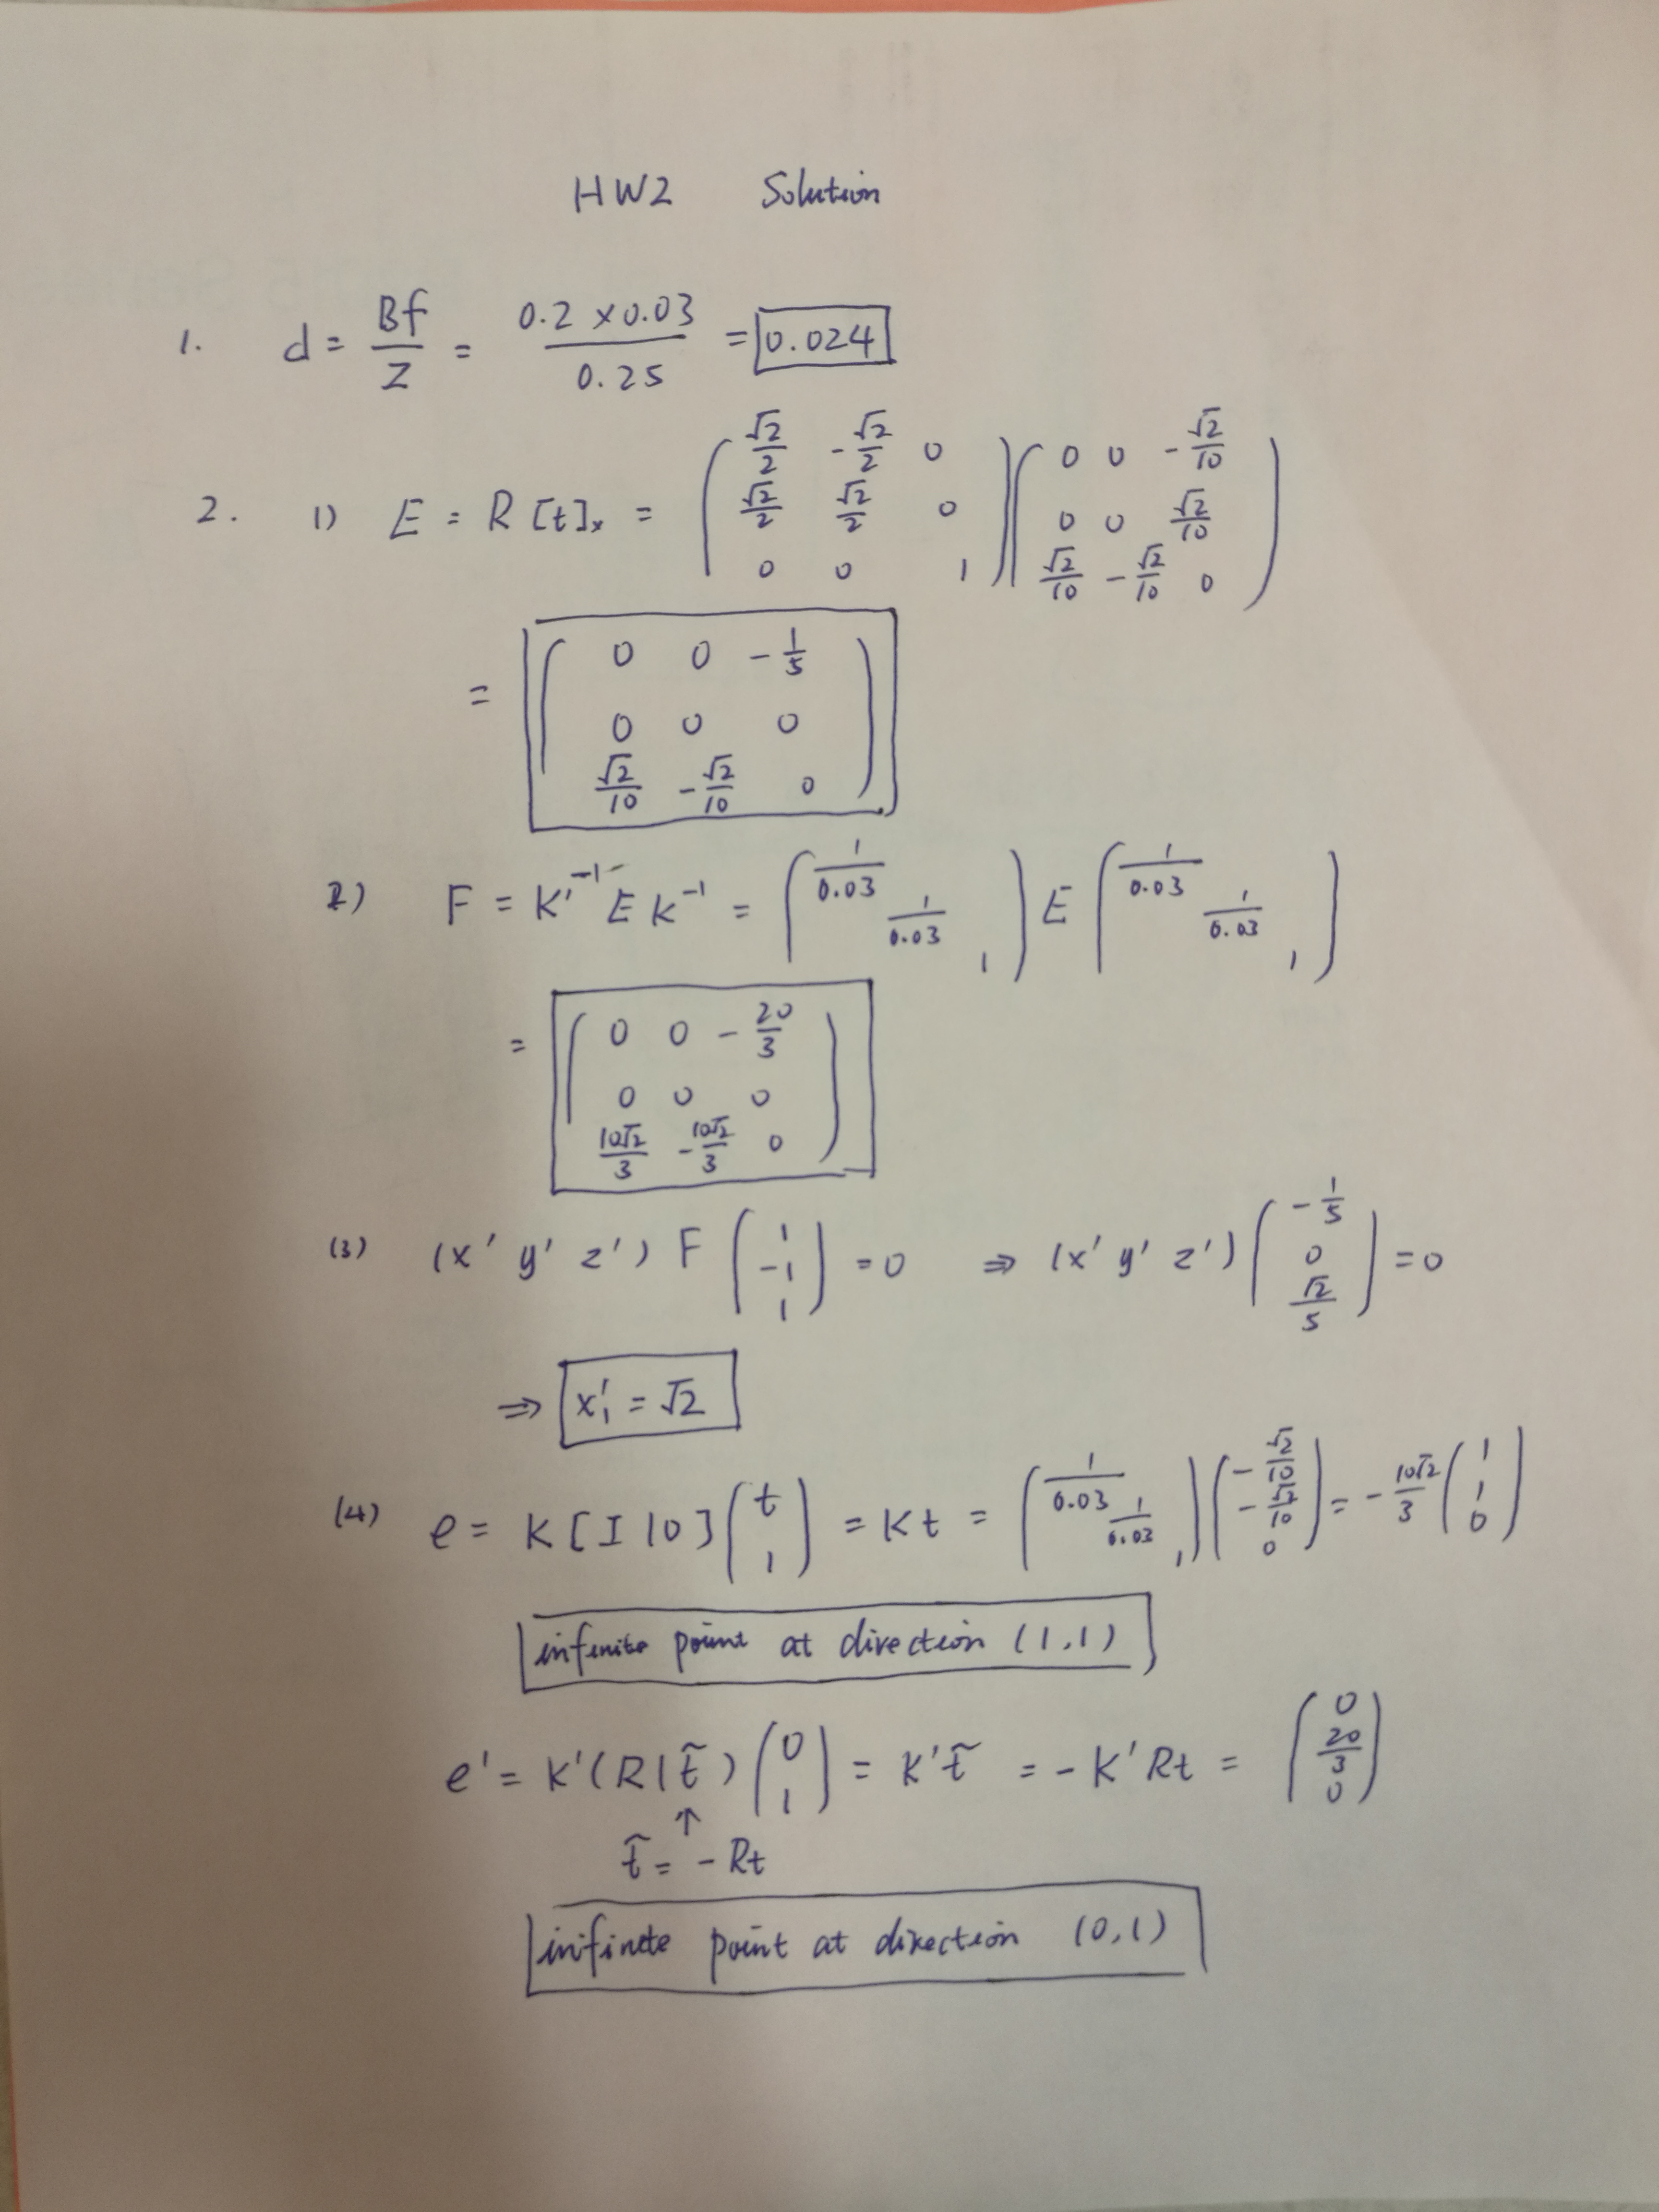 HW2 Solution
1. d = Bf/Z = (0.2 × 0.03)/0.25 = 0.024
2. 1) E = R [t]ₓ = ( √2/2 -√2/2 0 ; √2/2 √2/2 0 ; 0 0 1 ) ( 0 0 -√2/10 ; 0 0 √2/10 ; √2/10 -√2/10 0 )
= ( 0 0 -1/5 ; 0 0 0 ; √2/10 -√2/10 0 )
2) F = K'^{-T} E K^{-1} = ( 1/0.03 1/0.03 1 ) E ( 1/0.03 1/0.03 1 )
= ( 0 0 -20/3 ; 0 0 0 ; 10√2/3 -10√2/3 0 )
(3) (x' y' z') F ( 1 ; -1 ; 1 ) = 0 ⇒ (x' y' z') ( -1/5 ; 0 ; √2/5 ) = 0
⇒ x'₁ = √2
(4) e = K [I|0] ( t ; 1 ) = Kt = ( 1/0.03 1/0.03 1 ) ( -√2/10 ; -√2/10 ; 0 ) = -10√2/3 ( 1 ; 1 ; 0 )
infinite point at direction (1,1)
e' = K'(R|t̃) ( 0 ; 1 ) = K't̃ = -K'Rt = ( 0 ; 20/3 ; 0 )
↑
t̃ = -Rt
infinite point at direction (0,1)